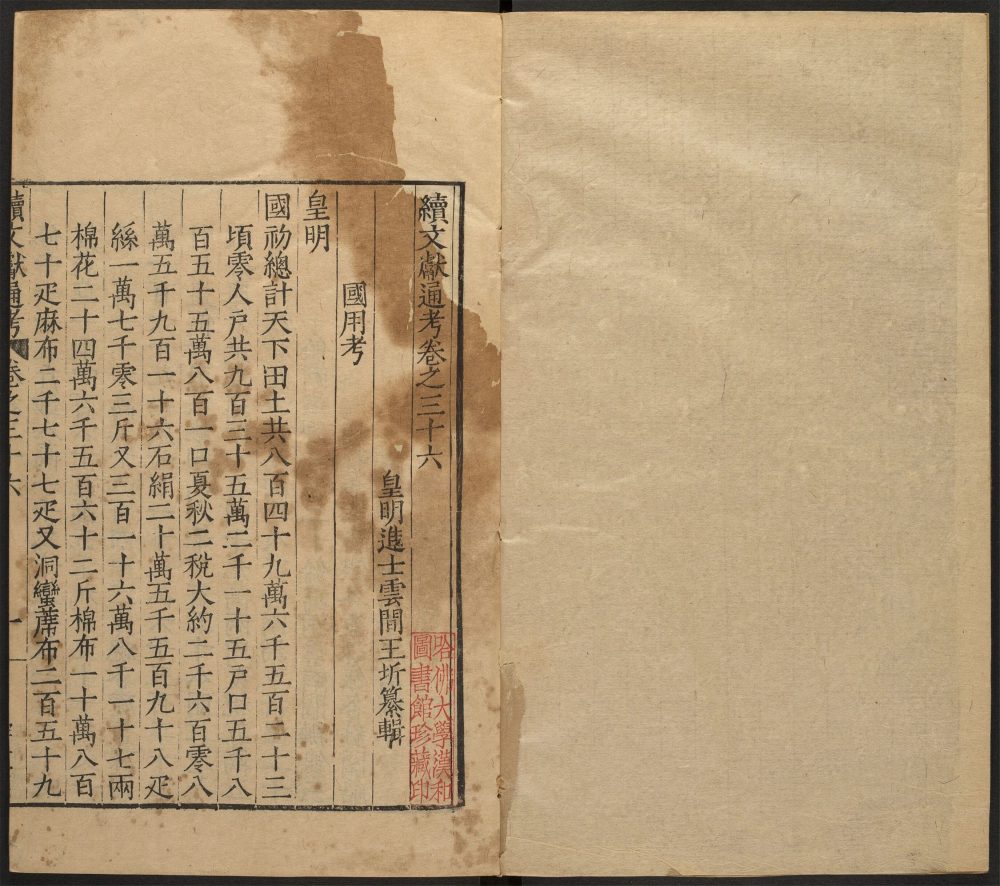 續文獻通考卷之三十六
皇明進士雲間王圻纂輯
國用考
皇明
國初總計天下田土共八百四十九萬六千五百二十三
頃零人戶共九百三十五萬二千一十五戶口五千八
百五十五萬八百一口夏秋二稅大約二千六百零八
萬五千九百一十六石絹二十萬五千五百九十八疋
絲一萬七千零三斤又三百一十六萬八千一十七兩
棉花二十四萬六千五百六十二斤棉布一十萬八百
七十疋麻布二千七十七疋又洞蠻蓆布二百五十九
續文獻通考 卷之三十六 一
哈佛大學漢和
圖書館珍藏印